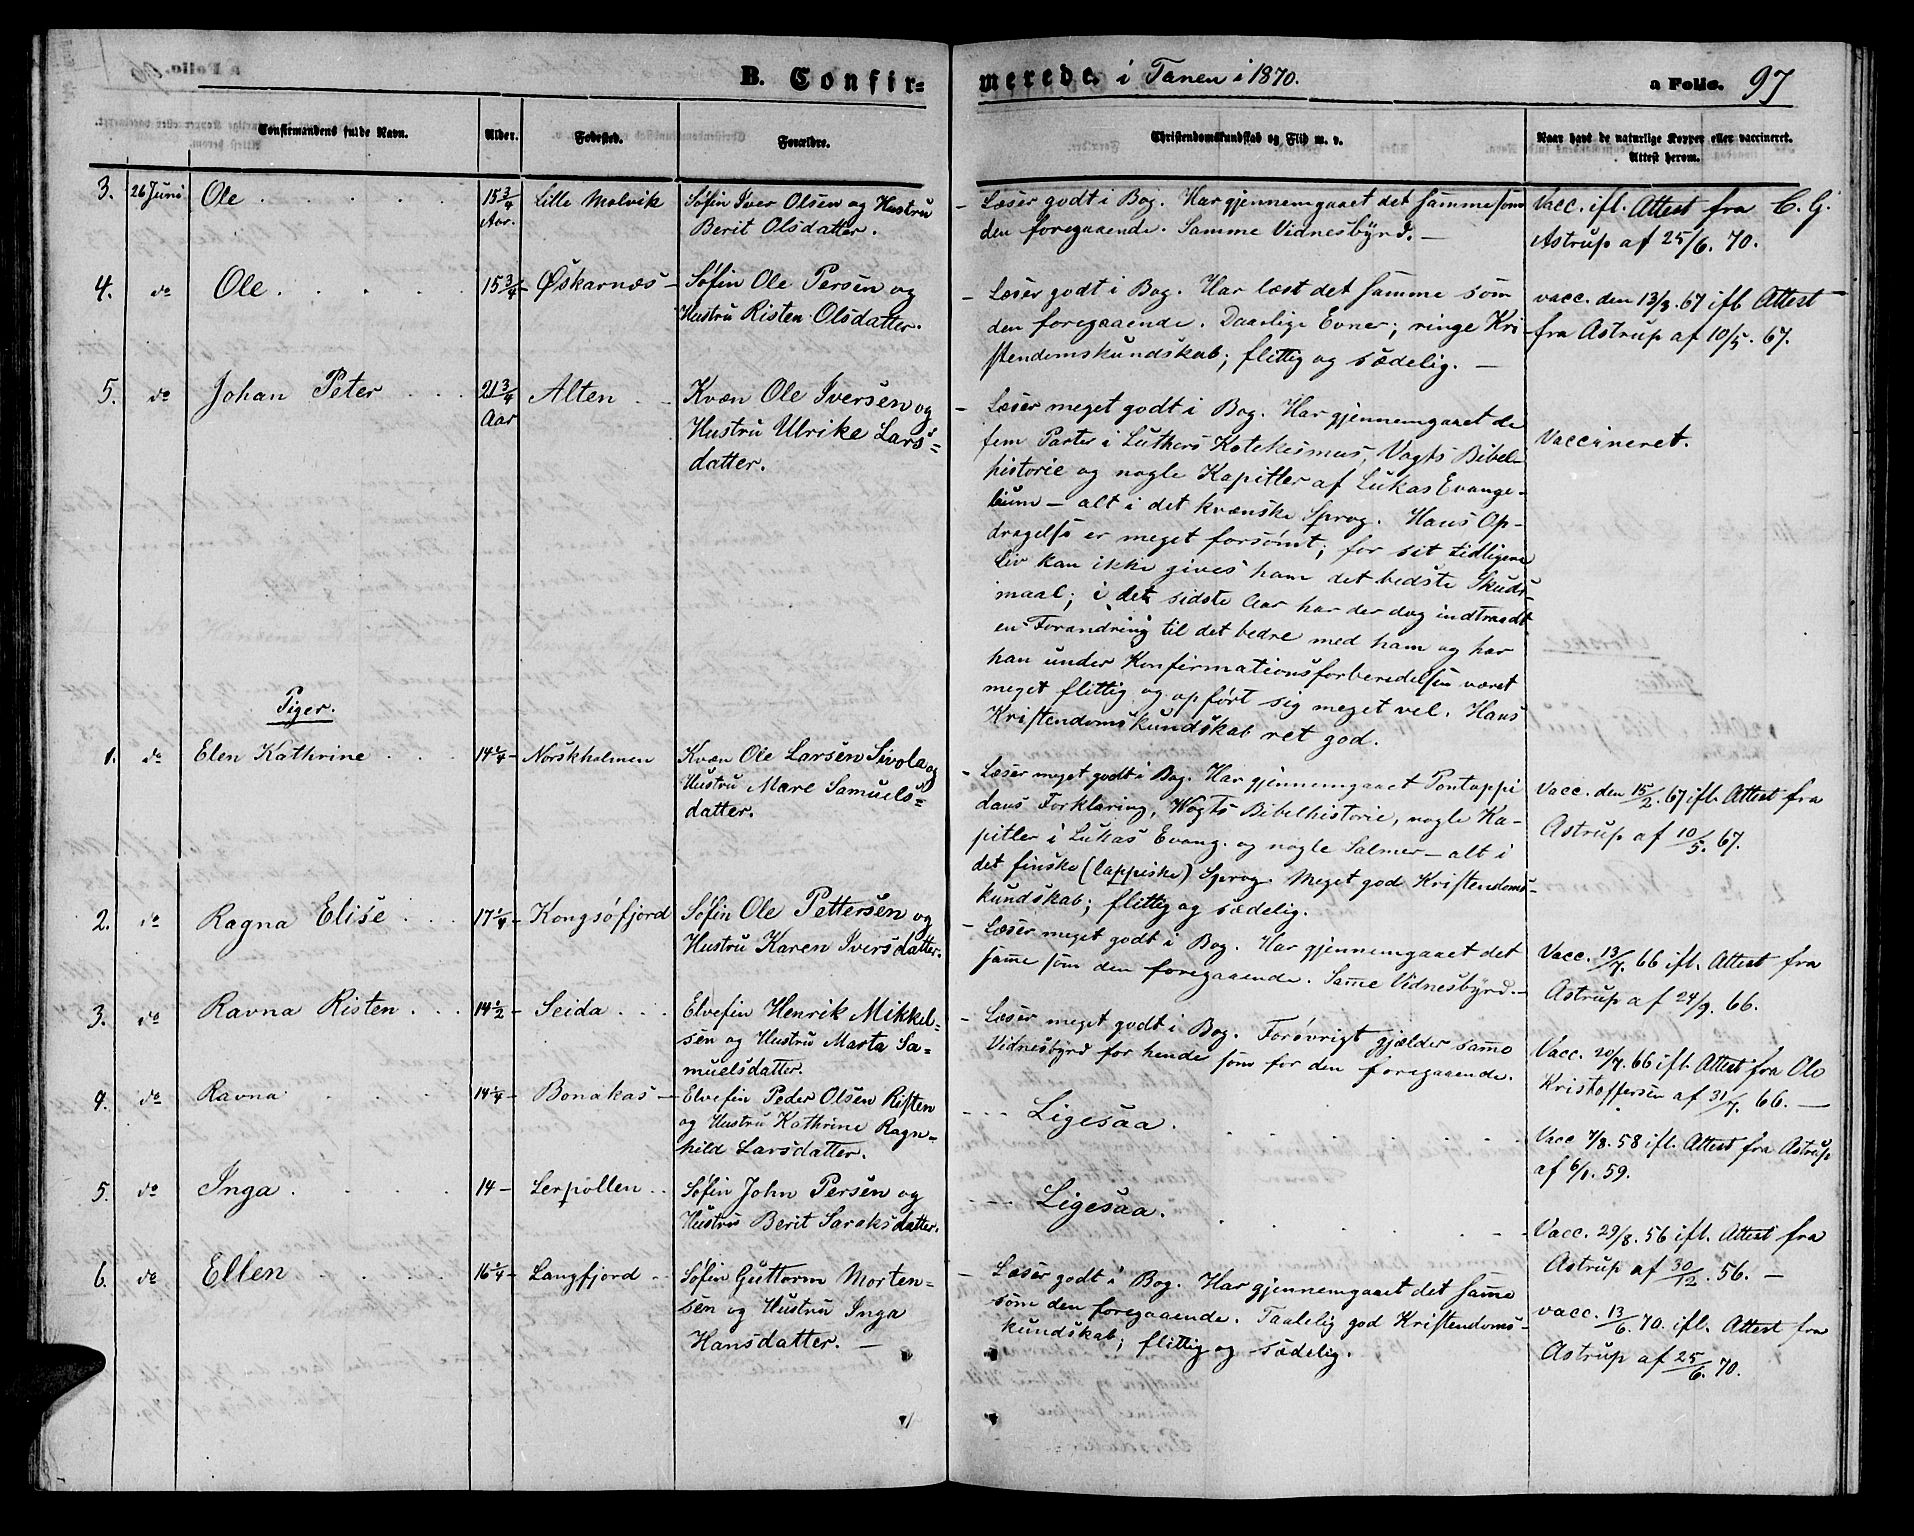 B. Confir-
merede. i Tanen i 1870.
a Folio. 97
Confirmandens fulde Navn.
Alder.
Fødested.
Forældre.
Christendomskundskab og Flid m. v.
Naar havt de naturlige Kopper eller vaccineret.
Attest herom.
3. 26 Juni Ole . . . . . 15 3/4 Aar. Lille Molvik
Søfin Iver Olsen og Hustru
Berit Olsdatter.
- Læser godt i Bog. Har gjennemgaaet det samme som
den foregaaende. Samme Vidnesbyrd. -
Vacc. ifl. Attest fra C. G.
Astrup af 25/6. 70.
4. do Ole . . . . . 15 3/4 - Øskarnæs -
Søfin Ole Persen og
Hustru Risten Olsdatter.
- Læser godt i Bog. Har læst det samme som
den foregaaende. Daarlige Evner; ringe Kri-
stendomskundskab; flittig og sædelig. -
vacc. den 13/3. 67 ifl Attest
fra Astrup af 10/5. 67.
5. do Johan Peter . . . 21 3/4 Aar Alten . .
Kvæn Ole Iversen og
Hustru Ulrike Lars-
datter.
- Læser meget godt i Bog. Har gjennemgaaet de
fem Parter i Luthers Katekismus, Vogts Bibel-
historie og nogle Kapitler af Lukas Evange-
lium - alt i det kvænske Sprog. Hans Op-
dragelse er meget forsømt; for sit tidligere
Liv kan ikke gives ham det bedste Skuds-
maal; i det sidste Aar har der dog indtraadt
en Forandring til det bedre med ham og har
han under Konfirmationsforberedelsen været
meget flittig og opført sig meget vel. Hans
Kristendomskundskab ret god.
Vaccineret.
Piger.
1. do Elen Kathrine . . . 14 1/4 - Norskholmen
Kvæn Ole Larsen Sivola og
Hustru Mare Samuels-
datter.
- Læser meget godt i Bog. Har gjennemgaaet Pontoppi
dans Forklaring, Vogts Bibelhistorie, nogle Ka-
pitler i Lukas Evang. og nogle Salmer - alt i
det finske (lappiske) Sprog. Meget god Kristendoms-
kundskab; flittig og sædelig.
Vacc. den 15/2. 67 ifl. Attest fra
Astrup af 10/5. 67.
2. do Ragna Elise . . . 17 1/4 - Kongsøfjord
Søfin Ole Pettersen og
Hustru Karen Iversdatter.
- Læser meget godt i Bog. Har gjennemgaaet det
same som den foregaaende. Same Vidnesbyrd. -
Vacc. 13/7. 66 ifl. Attest fra
Astrup af 24/9. 66.
3. do Ravna Risten . . . 14 1/2 - Seida . . .
Elvefin Henrik Mikkel-
sen og Hustru Marta Sa-
muelsdatter.
- Læser meget godt i Bog. Forøvrigt gjælder same
Vidnesbyrd for hende som for den foregaaende.
Vacc. 20/7. 66 ifl. Attest fra Ole
Kristoffersen af 31/7. 66. -
4. do Ravna . . . . 14 1/4 - Bonakas -
Elvefin Peder Olsen Risten
og Hustru Kathrine Ragn-
hild Larsdatter.
- - - Ligesaa. . . . . . .
Vacc 7/8. 58 ifl. Attest fra Astrup
af 6/1. 59.
5. do Inga . . . . . 14 - Lerpollen . .
Søfin John Persen og
Hustru Berit Saraksdatter.
- - - Ligesaa. . . . . - -
Vacc. 29/8. 56 ifl. Attest fra
Astrup af 30/12. 56. -
6. do Ellen . . . . 16 1/4 - Langfjord . .
Søfin Guttorm Morten-
sen og Hustru Inga
Hansdatter. -
- Læser godt i Bog. Har gjennemgaaet det same
som den foregaaende. Taalelig god Kristendoms-
kundskab; flittig og sædelig.
vacc. 13/6. 70. ifl. Attest fra
Astrup af 25/6. 70.